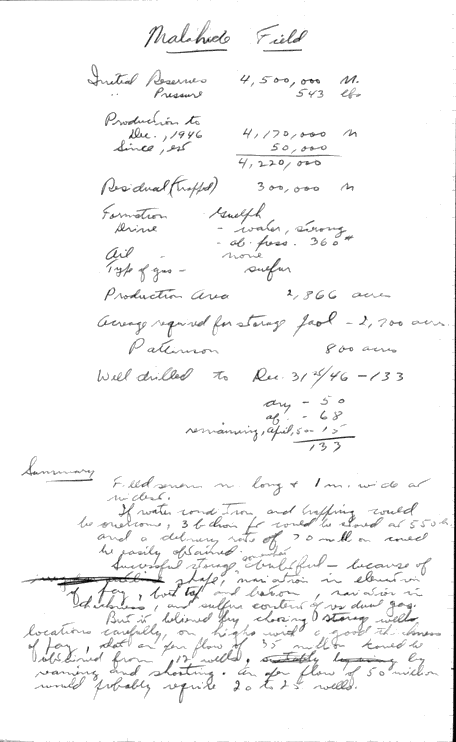 Malahide Field
Initial Reserves 4,500,000 M.
" Pressure 543 lbs
Production to
Dec., 1946 4,170,000 M
Since, est 50,000
4,220,000
Residual (trapped) 300,000 M
Formation Guelph
Drive - water, strong
- ab. press. 360#
Oil - none
Type of gas - sulfur
Production Area 2,866 acres
Acreage required for storage pool - 2,700 acres
Patterson 800 acres
Well drilled to Dec. 31st/46 - 133
dry - 50
- 68
remaining, April, 50 15
133
Summary
Field seven m. long & 1 m. wide at
widest.
If water condition and trapping could
be overcome, 3 billion ft could be stored at 550 lb.
and a delivery rate of 70 million could
be easily obtained.
Successful storage, somewhat doubtful - because of
shape, variation in elevation
of pay, both top and bottom, variation in
thickness, and sulfur content of residual gas.
But it is believed by choosing storage wells,
locations carefully, on highs with a good thickness
of pay, that an open flow of 35 million could be
obtained from 12 wells, by
reaming and shooting. An open flow of 50 million
would probably require 20 to 25 wells.